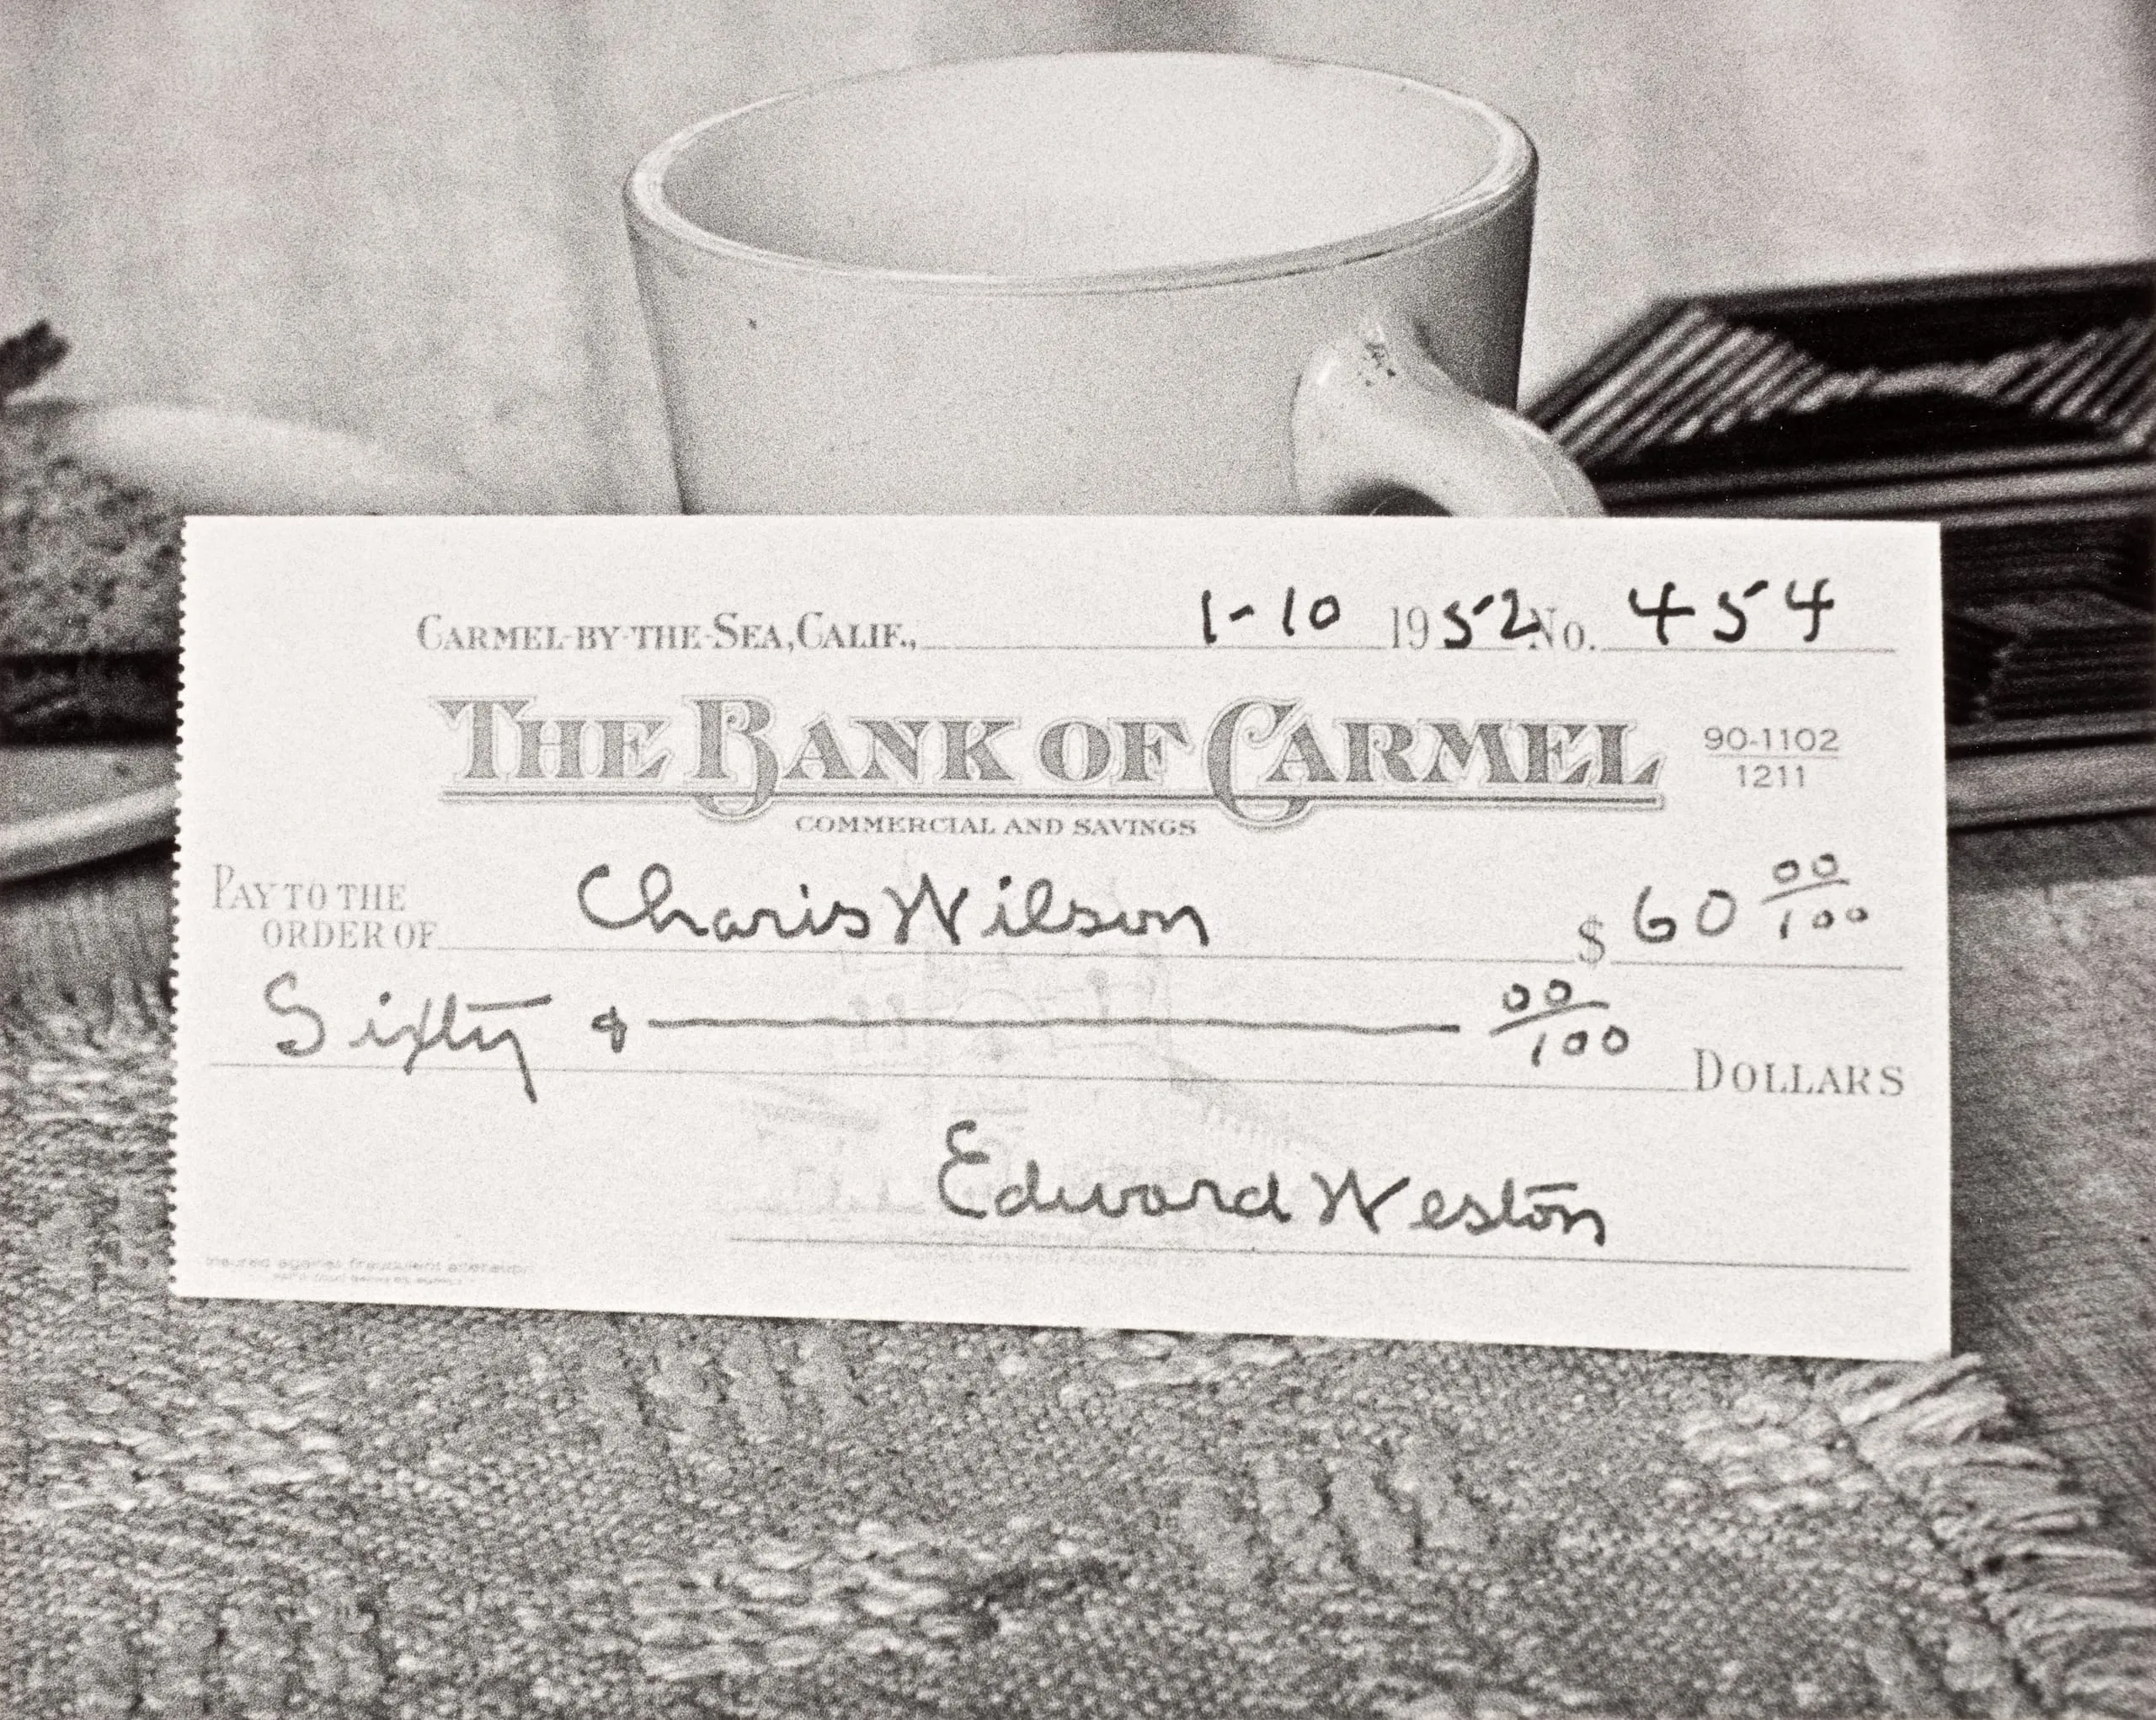 CARMEL-BY-THE-SEA, CALIF., 1-10 1952 No. 454
THE BANK OF CARMEL
90-1102
1211
COMMERCIAL AND SAVINGS
PAY TO THE
ORDER OF Charis Wilson $ 60 00/100
Sixty & 00/100 DOLLARS
Edward Weston
insured against fraudulent alteration